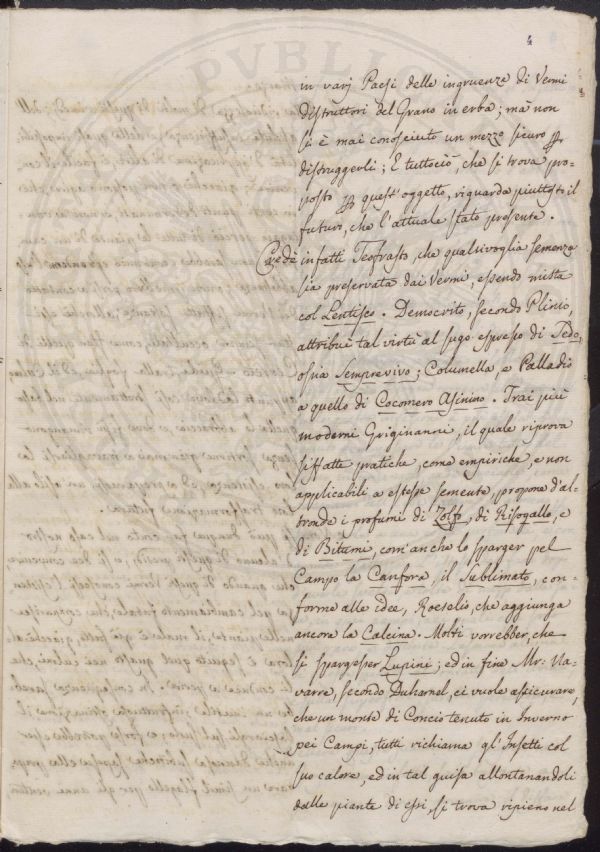 4
in varj Paesi delle ingruenze di Vermi
distruttori del Grano in erba; mà non
si è mai conosciuto un mezzo sicuro
distruggerli; E tuttociò, che si trova pro-
posto quest'oggetto, riguarda piuttosto il
futuro, che l'attuale stato presente.
Crede infatti Teofrasto, che qualsivoglia semenza
sia preservata dai Vermi, essendo mista
col Lentisco. Democrito, secondo Plinio,
attribuì tal virtù al sugo espresso di Sedo,
ossia Semprevivo; Columella, e Palladio
a quello di Cocomero Asinino. Trai più
moderni Griginanni, il quale riprova
siffatte pratiche, come empiriche, e non
applicabili a estese semente, propone d'al-
tronde i profumi di Zolfo, di Risogallo, e
di Bitume, com'anche lo sparger pel
Campo la Canfora, il Sublimato, con-
forme alle idee, Roeselio, che aggiunga
ancora la Calcina. Molti vorrebber, che
si spargesser Lupini; ed in fine Mr: Na-
varre, secondo Duhamel, ci vuole assicurare,
che un monte di Concio tenuto in Inverno
pei Campi, tutti richiama gl'Insetti col
suo calore, ed in tal guisa allontanandoli
dalle piante di essi, si trova ripieno nel